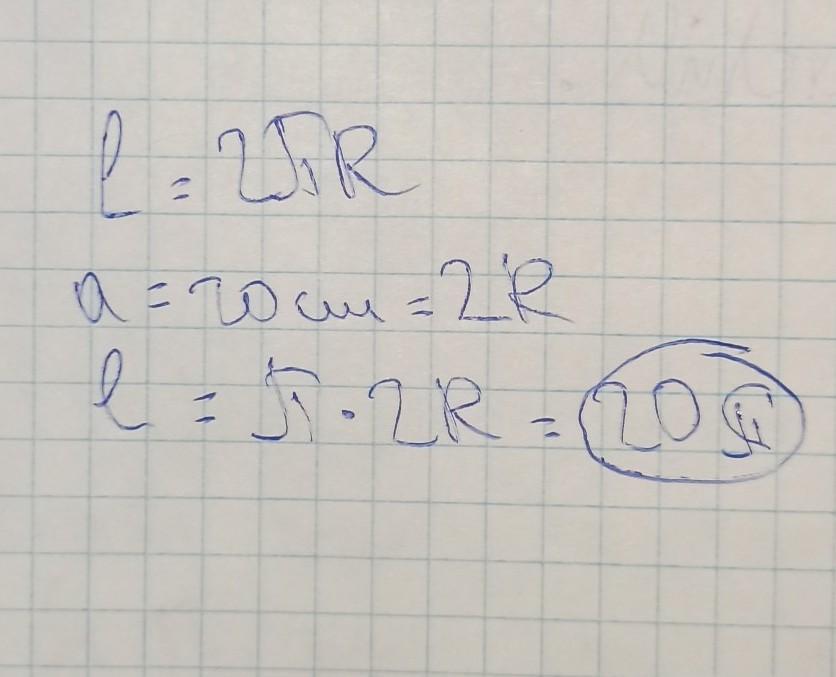 l = 2πR
a = 20 см = 2R
l = π · 2R = 20π